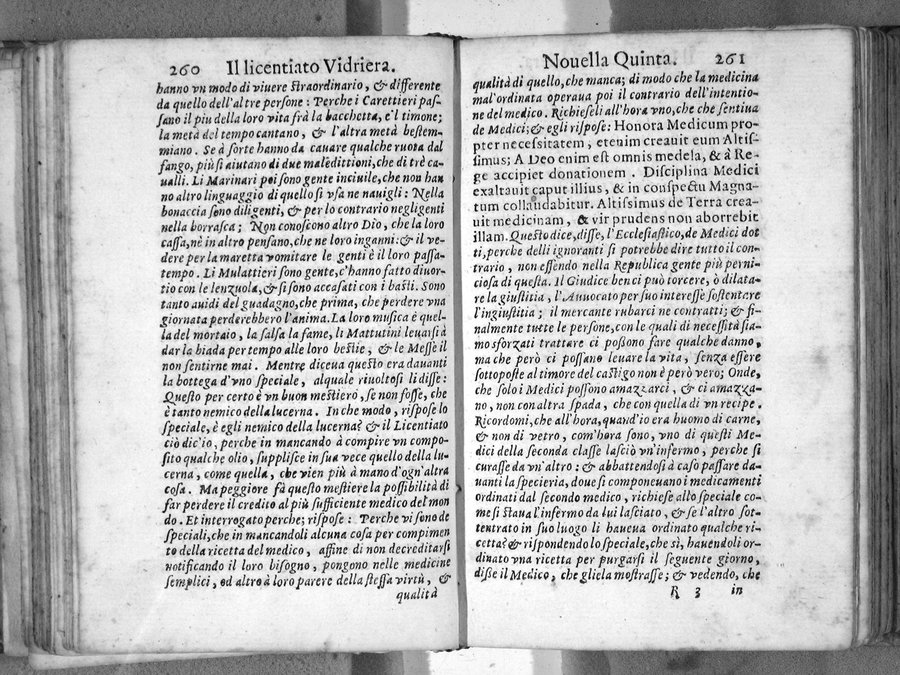 260 Il licentiato Vidriera.
hanno vn modo di viuere straordinario, & differente
da quello dell'altre persone: Perche i Carettieri pas-
sano il piu della loro vita frà la bacchetta, e'l timone;
la metà del tempo cantano, & l'altra metà bestem-
miano. Se à sorte hanno da cauare qualche ruota dal
fango, più si aiutano di due maledittioni, che di trè ca-
ualli. Li Marinari poi sono gente inciuile, che non han
no altro linguaggio di quello si vsa ne nauigli: Nella
bonaccia sono diligenti, & per lo contrario negligenti
nella borrasca; Non conoscono altro Dio, che la loro
cassa, nè in altro pensano, che ne loro inganni: & il ve-
dere per la maretta vomitare le genti è il loro passa-
tempo. Li Mulattieri sono gente, c'hanno fatto diuor-
tio con le lenzuola, & si sono accasati con i basti. Sono
tanto auidi del guadagno, che prima, che perdere vna
giornata perderebbero l'anima. La loro musica è quel-
la del mortaio, la salsa la fame, li Mattutini leuarsi à
dar la biada per tempo alle loro bestie, & le Messe il
non sentirne mai. Mentre diceua questo era dauanti
la bottega d'vno speciale, alquale riuoltosi li disse:
Questo per certo è vn buon mestiero, se non fosse, che
è tanto nemico della lucerna. In che modo, rispose lo
speciale, è egli nemico della lucerna? & il Licentiato
ciò dic'io, perche in mancando à compire vn compo-
sito qualche olio, supplisce in sua vece quello della lu-
cerna, come quella, che vien più à mano d'ogn'altra
cosa. Ma peggiore fà questo mestiere la possibilità di
far perdere il credito al più sufficiente medico del mon
do. Et interrogato perche; rispose: Perche vi sono de
speciali, che in mancandoli alcuna cosa per compimen
to della ricetta del medico, affine di non decreditarsi
notificando il loro bisogno, pongono nelle medicine
semplici, od altro à loro parere della stessa virtù, &
qualità
Nouella Quinta. 261
qualità di quello, che manca; di modo che la medicina
mal'ordinata operaua poi il contrario dell'intentio-
ne del medico. Richieseli all'hora vno, che che sentiua
de Medici; & egli rispose: Honora Medicum pro-
pter necessitatem, etenim creauit eum Altis-
simus; A Deo enim est omnis medela, & à Re-
ge accipiet donationem. Disciplina Medici
exaltauit caput illius, & in conspectu Magna-
tum collaudabitur. Altissimus de Terra crea-
uit medicinam, & vir prudens non aborrebit
illam. Questo dice, disse, l'Ecclesiastico, de Medici dot
ti, perche delli ignoranti si potrebbe dire tutto il con-
trario, non essendo nella Republica gente più perni-
ciosa di questa. Il Giudice ben ci può torcere, ò dilata-
re la giustitia, l'Auuocato per suo interesse sostentare
l'ingiustitia; il mercante rubarci ne contratti; & fi-
nalmente tutte le persone, con le quali di necessità sia-
mo sforzati trattare ci possono fare qualche danno,
ma che però ci possano leuare la vita, senza essere
sottoposte al timore del castigo non è però vero; Onde,
che solo i Medici possono amazzarci, & ci amazza-
no, non con altra spada, che con quella di vn recipe.
Ricordomi, che all'hora, quand'io era huomo di carne,
& non di vetro, com'hora sono, vno di questi Me-
dici della seconda classe lasciò vn'infermo, perche si
curasse da vn'altro: & abbattendosi à caso passare da-
uanti la specieria, doue si componeuano i medicamenti
ordinati dal secondo medico, richiese allo speciale co-
me si staua l'infermo da lui lasciato, & se l'altro sot-
tentrato in suo luogo li haueua ordinato qualche ri-
cetta? & rispondendo lo speciale, che sì, hauendoli or-
dinato vna ricetta per purgarsi il seguente giorno,
disse il Medico, che gliela mostrasse; & vedendo, che
R 3 in